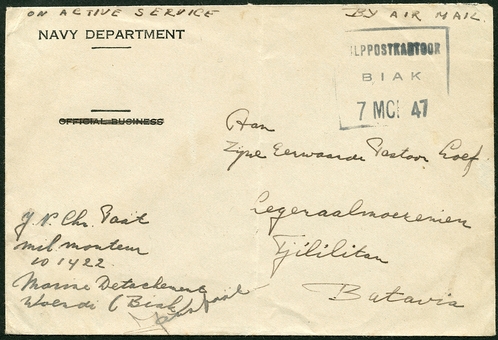 ON ACTIVE SERVICE
BY AIR MAIL.
NAVY DEPARTMENT
OFFICIAL BUSINESS
ILPPOSTKANTOOR
BIAK
7 MCI 47
Aan
Zijne Eerwaarde Pastoor Loef
Legeraalmoezenier
Tjililitan
Batavia
J. V. Chr. Taat
mil monteur
101422
Marine Detachement
Woendi (Biak)